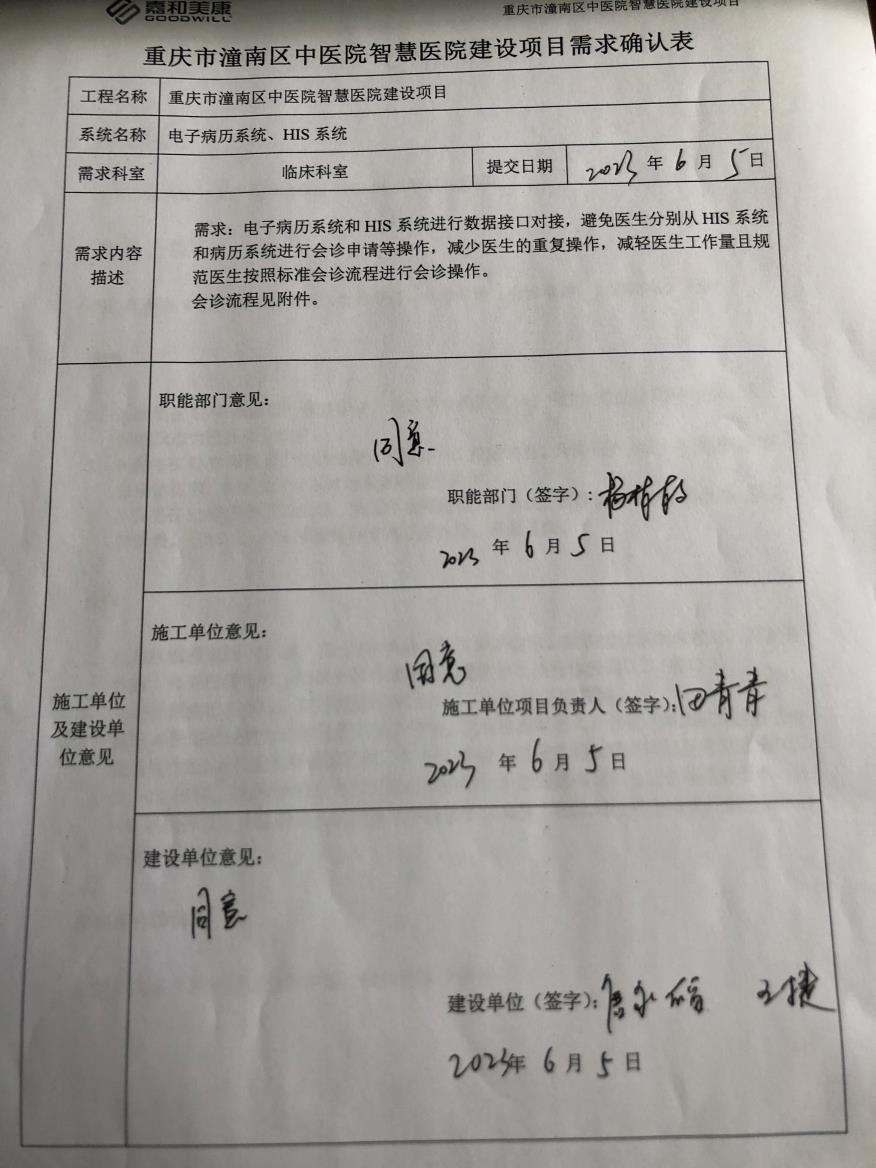 嘉和美康
GOODWILL
重庆市潼南区中医院智慧医院建设项目
重庆市潼南区中医院智慧医院建设项目需求确认表
工程名称 重庆市潼南区中医院智慧医院建设项目
系统名称 电子病历系统、HIS 系统
需求科室 临床科室 提交日期 2023 年 6 月 5 日
需求内容
描述
需求：电子病历系统和 HIS 系统进行数据接口对接，避免医生分别从 HIS 系统
和病历系统进行会诊申请等操作，减少医生的重复操作，减轻医生工作量且规
范医生按照标准会诊流程进行会诊操作。
会诊流程见附件。
施工单位
及建设单
位意见
职能部门意见：
同意
职能部门（签字）：
2023 年 6 月 5 日
施工单位意见：
同意
施工单位项目负责人（签字）：田青青
2023 年 6 月 5 日
建设单位意见：
同意
建设单位（签字）： 王捷
2023年 6 月 5 日